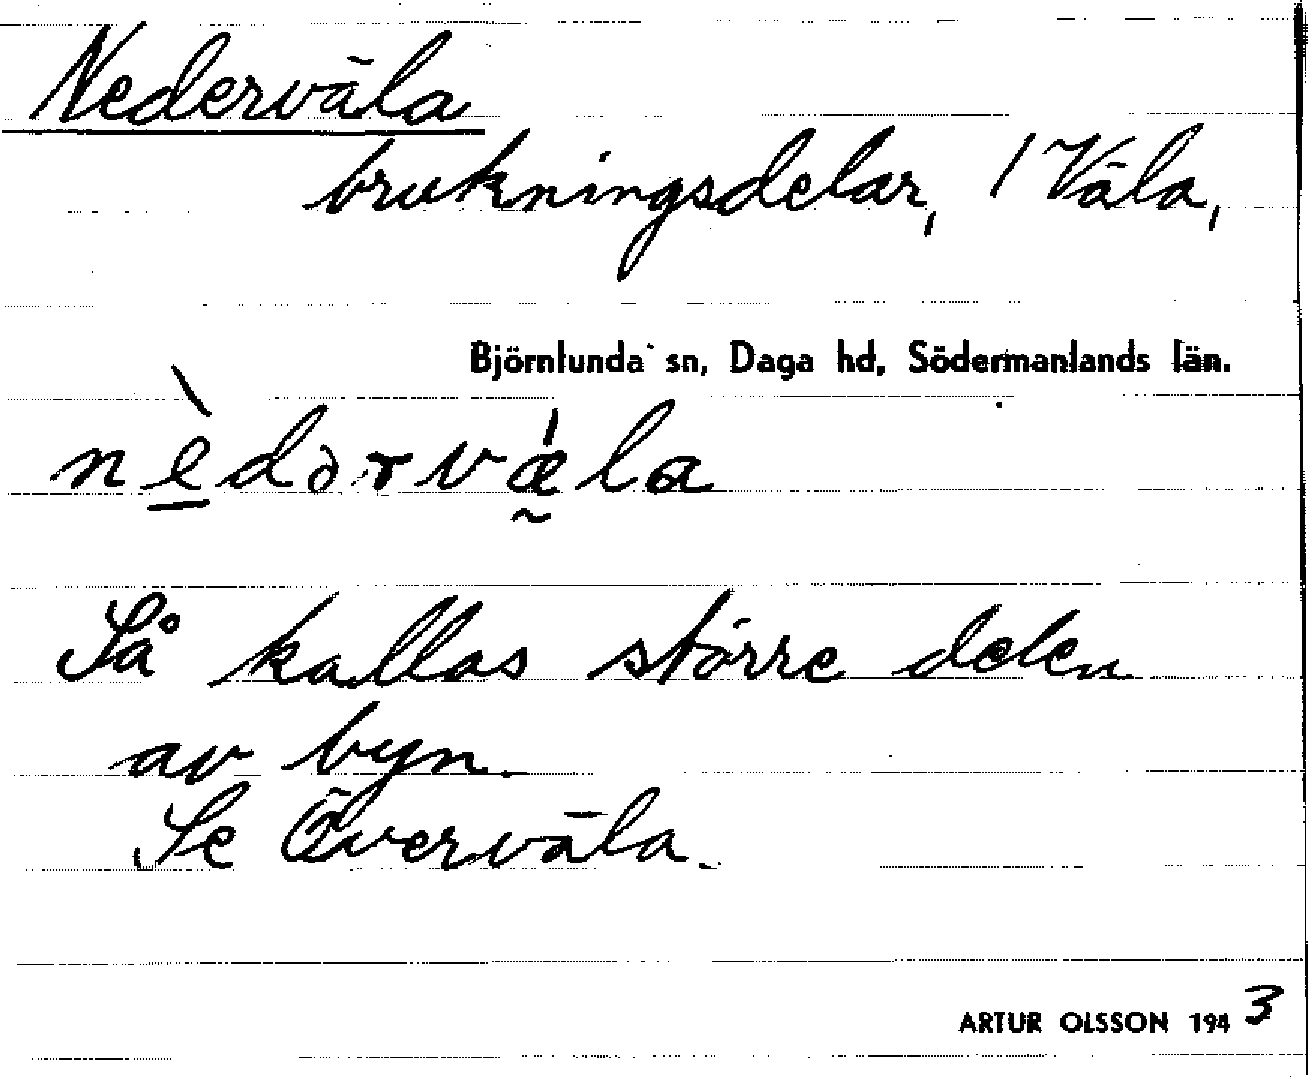 Nederväla
brukningsdelar, / Väla,
Björnlunda sn, Daga hd, Södermanlands län.
nèdərvǽla
Så kallas större delen
av byn.
Se Överväla.
ARTUR OLSSON 1943